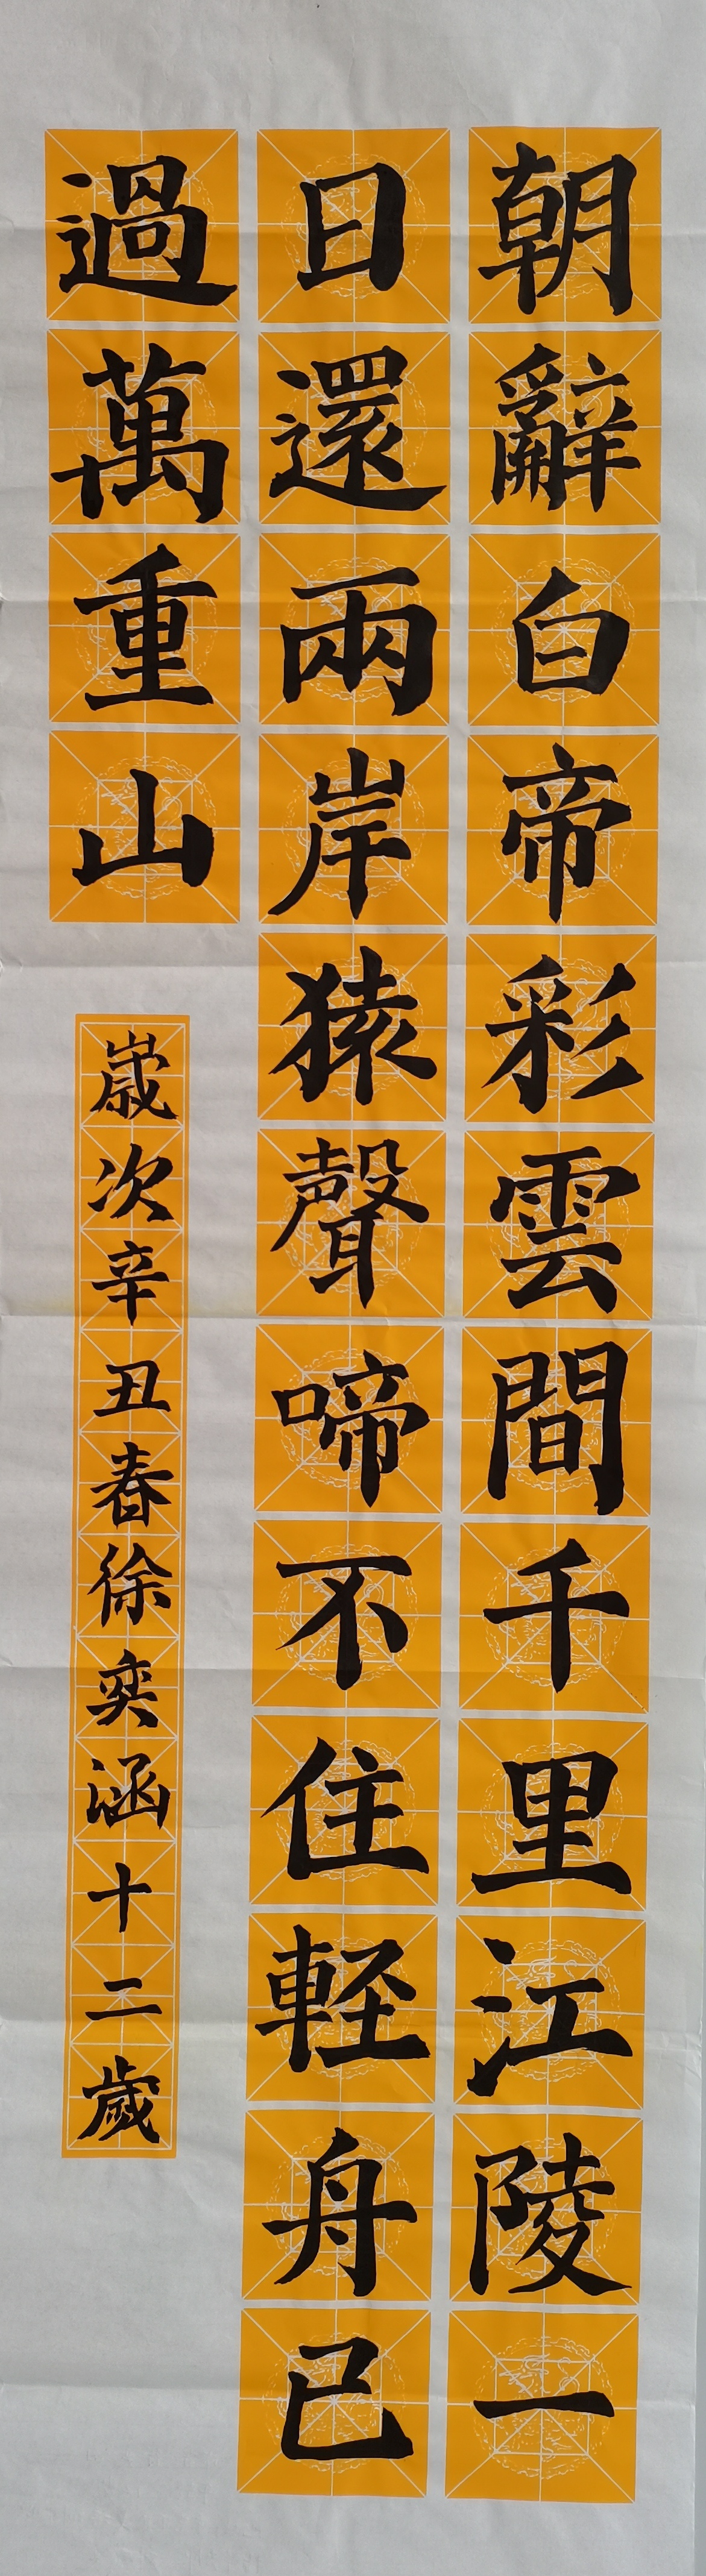 朝辭白帝彩雲間千里江陵一
日還兩岸猿聲啼不住軽舟已
過萬重山
歳次辛丑春徐奕涵十二歲